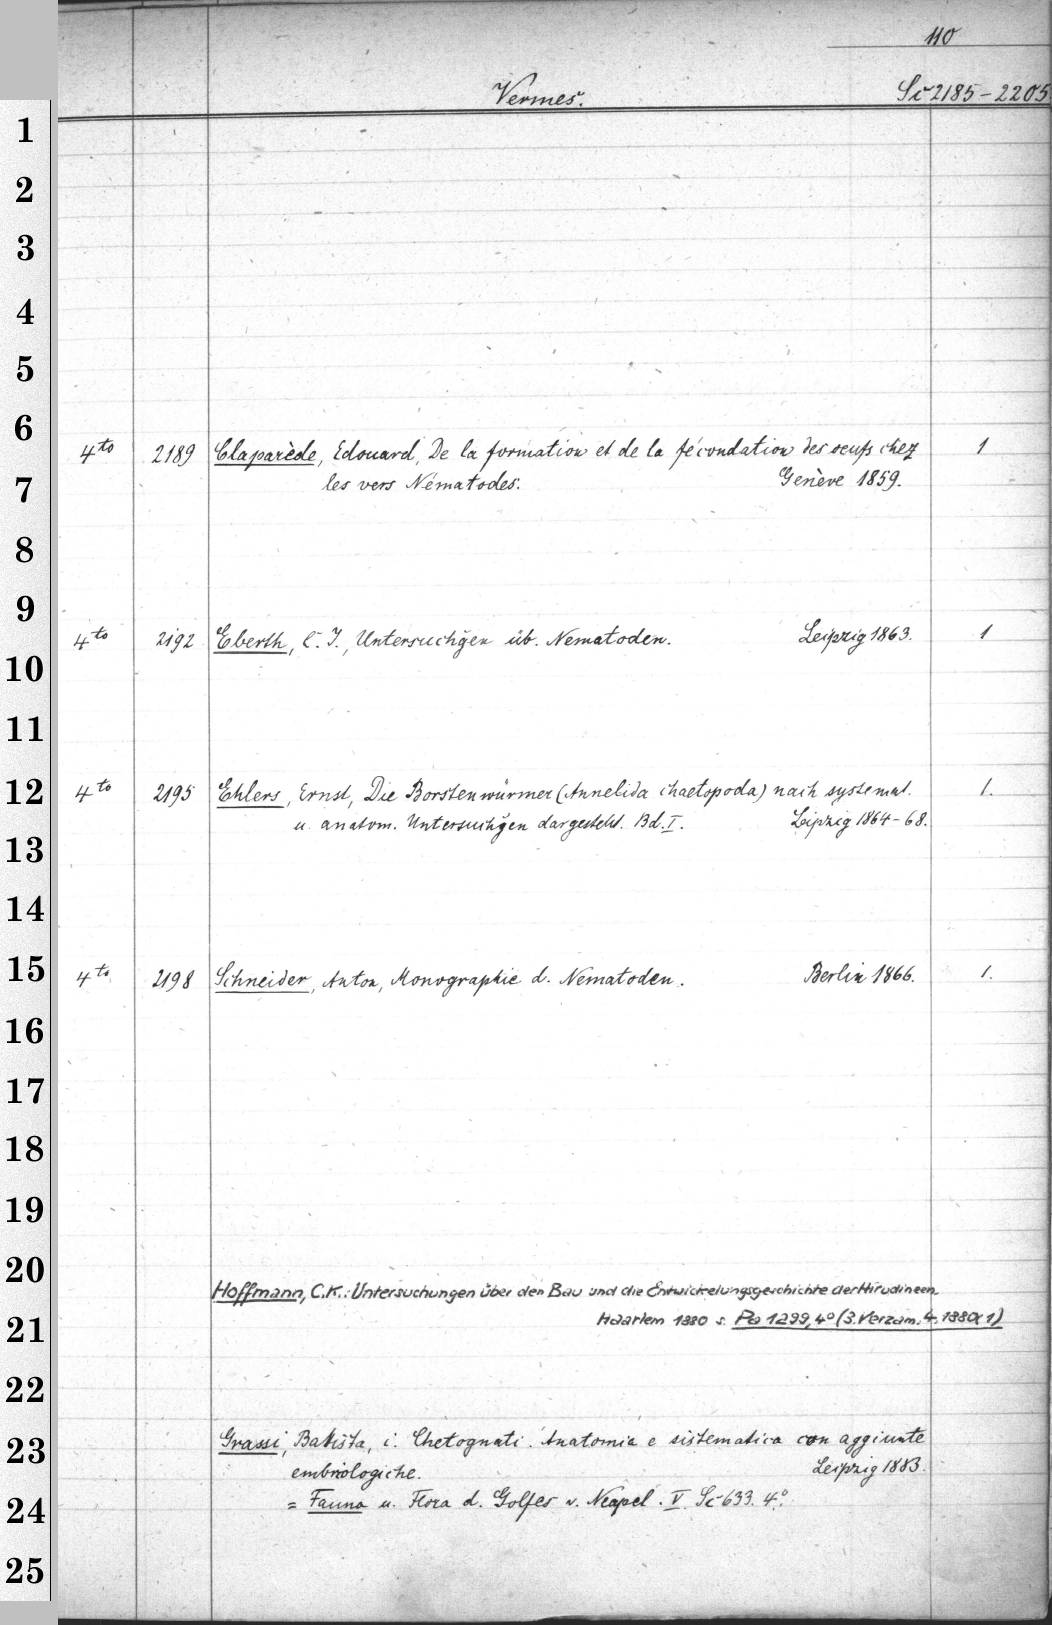 110
Vermes.
Sc 2185-2205
1
2
3
4
5
6
4to 2189 Claparède, Edouard, De la formation et de la fécondation des oeufs chez 1
7
les vers Nématodes. Genève 1859.
8
9
4to 2192 Eberth, C. J., Untersuchg̃en üb. Nematoden. Leipzig 1863. 1
10
11
12
4to 2195 Ehlers, Ernst, Die Borstenwürmer (Annelida chaetopoda) nach systemat. 1.
u. anatom. Untersuchg̃en dargestellt. Bd. I. Leipzig 1864-68.
13
14
15
4to 2198 Schneider, Anton, Monographie d. Nematoden. Berlin 1866. 1.
16
17
18
19
20
Hoffmann, C.K.: Untersuchungen über den Bau und die Entwickelungsgeschichte der Hirudineen.
21
Haarlem 1880 s. Pa 1299, 4° (3. Verzam. 4. 1880(1)
22
23
Grassi, Battista, i. Chetognati. Anatomia e sistematica con aggiunte
embriologiche. Leipzig 1883.
24
= Fauna u. Flora d. Golfes v. Neapel. V. Sc 633. 4°.
25